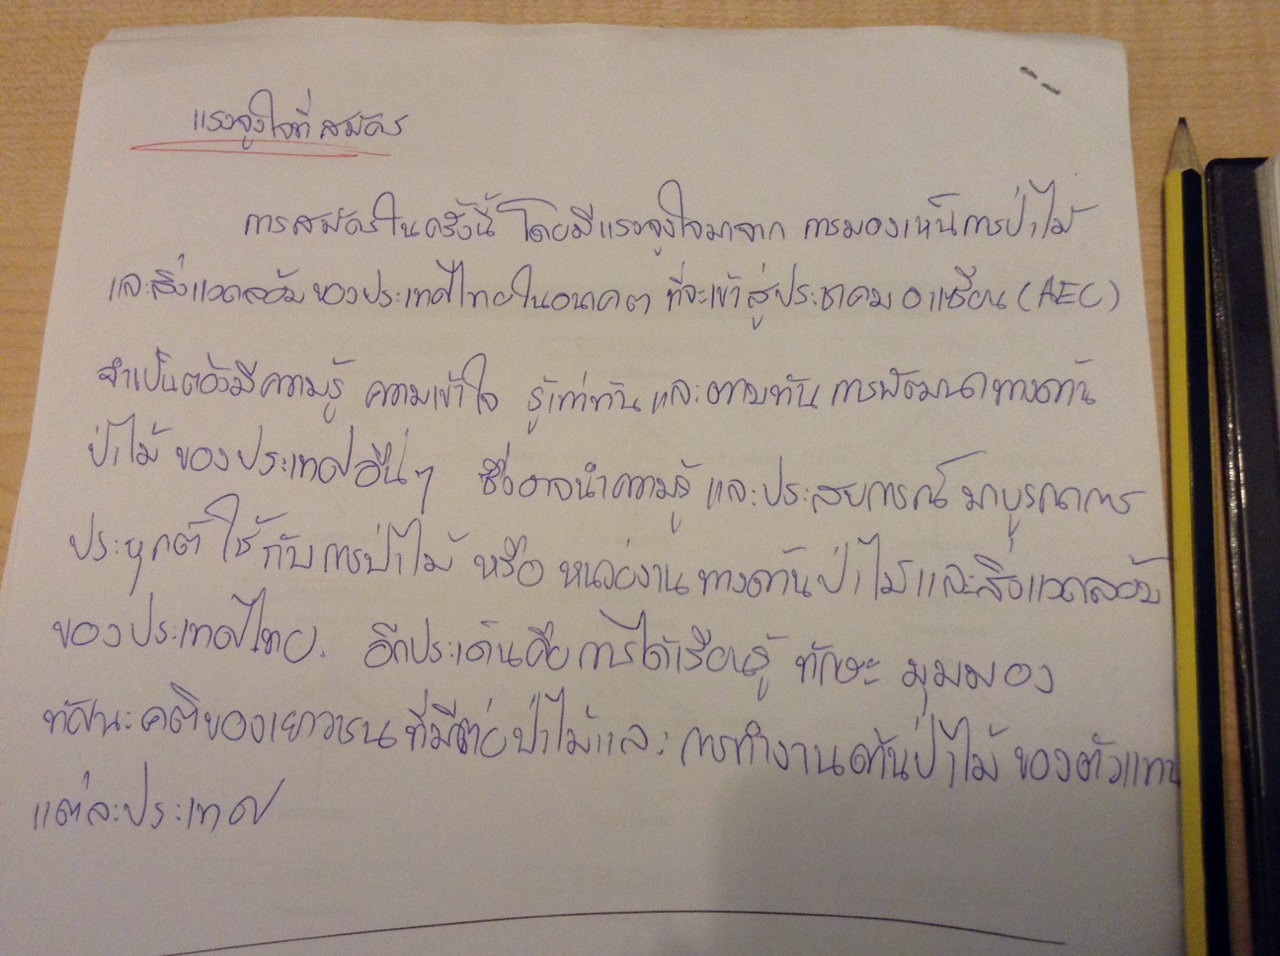 แรงจูงใจที่สมัคร
การสมัครในครั้งนี้ โดยมีแรงจูงใจมาจาก การมองเห็นการป่าไม้
และสิ่งแวดล้อมของประเทศไทยในอนาคต ที่จะเข้าสู่ประชาคมอาเซียน (AEC)
จำเป็นต้องมีความรู้ ความเข้าใจ รู้เท่าทัน และตามทัน การพัฒนาทางด้าน
ป่าไม้ ของประเทศอื่นๆ ซึ่งอาจนำความรู้ และประสบการณ์ มาบูรณาการ
ประยุกต์ ใช้ กับการป่าไม้ หรือ หน่วยงาน ทางด้านป่าไม้และสิ่งแวดล้อม
ของประเทศไทย. อีกประเด็นคือการได้เรียนรู้ ทักษะ มุมมอง
ทัศนะคติของเยาวชน ที่มีต่อป่าไม้และ การทำงานด้านป่าไม้ ของตัวแทน
แต่ละประเทศ